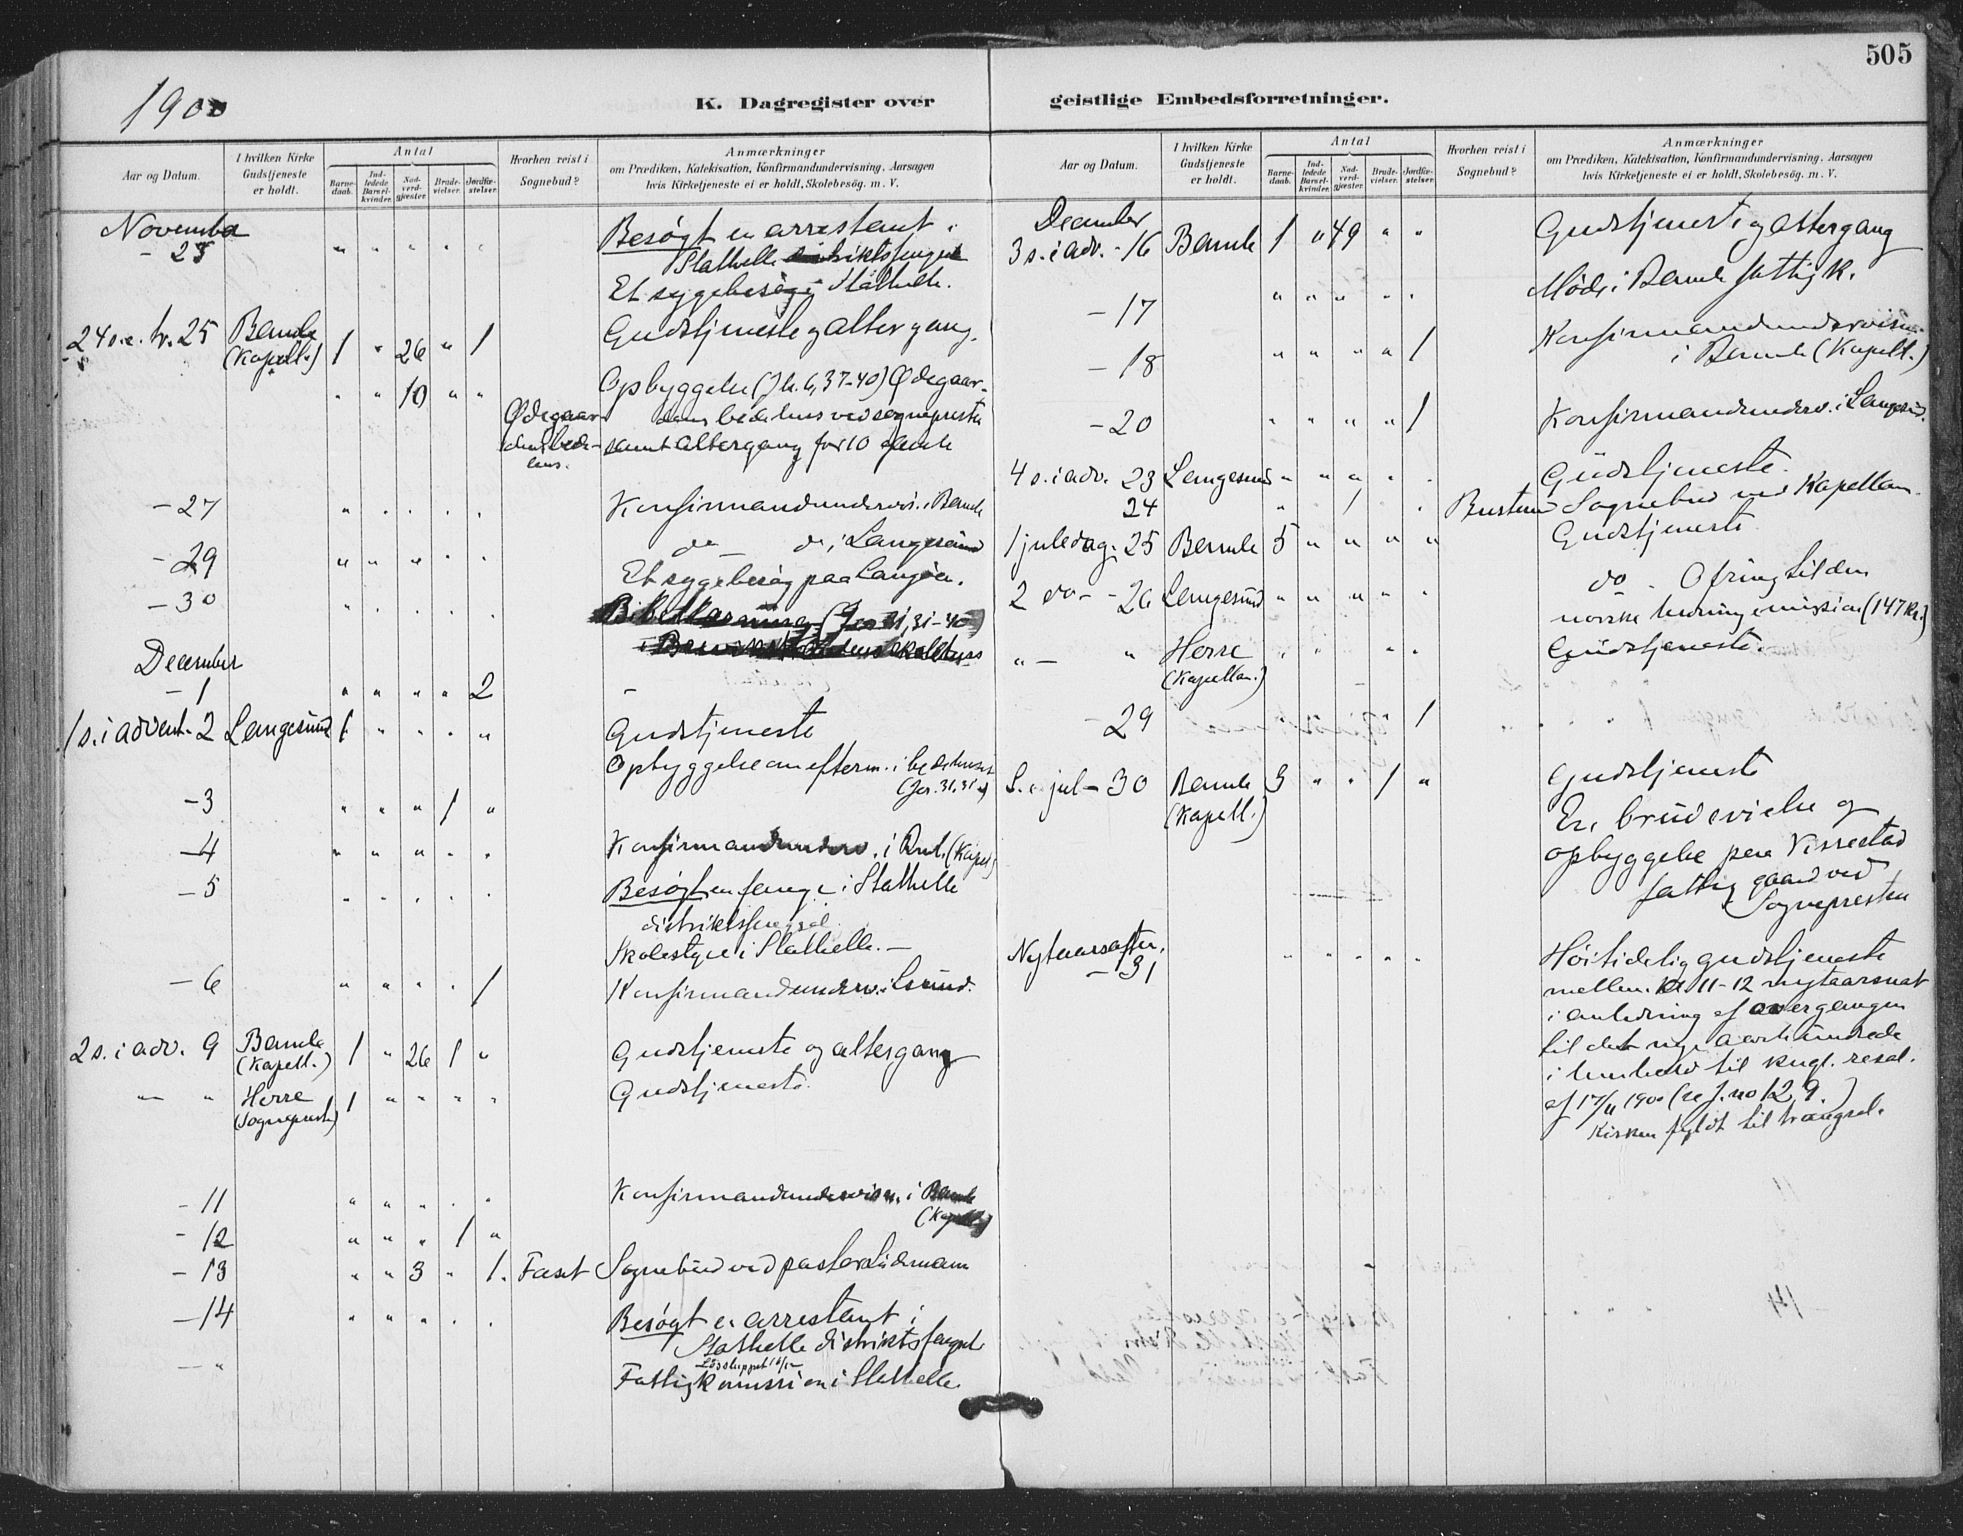 505
1900
K. Dagregister over geistlige Embedsforretninger.
Aar og Datum.
I hvilken Kirke Gudstjeneste er holdt.
Antal
Barnedaab.
Indledede Barselkvinder.
Nadverdgjæster.
Brudevielser.
Jordfæstelser.
Hvorhen reist i Sognebud?
Anmærkninger
om Prædiken, Katekisation, Konfirmandundervisning, Aarsagen
hvis Kirketjeneste ei er holdt, Skolebesøg. m. V.
November
- 23 " " " " " Besøgt en arrestant i
Stathelle distriktsfengsel
Et sygebesøg i Stathelle.
24 s. e. tr. 25 Bamble (Kapell.) 1 " 26 " 1 Gudstjeneste og altergang.
" " 10 " " Ødegaardens bedehus. Opbyggelse (Jh. 6, 37-40) Ødegaar-
dens bedehus ved sognepresten
samt altergang for 10 
- 27 " " " " " Konfirmandunderv. i Bamble
- 29 " " " " " do - do i Langesund
Et sygebesøg paa Langøen.
- 30 " " " " " Bibellæsning (Jer 31, 31-40)
i skolehus
December
- 1 " " " " 2 -
1 s. i advent. 2 Langesund 1 " " " " Gudstjeneste
Opbyggelse om efterm. i bedehuset
(Jer. 31, 31)
- 3 " " " 1 "
- 4 " " " " " Konfirmandunderv. i (Kapel)
- 5 " " " " " Besøgt en fange i Stathelle
distriktsfengsel.
Skolestyre i Stathelle. -
- 6 " " " " 1 Konfirmandunderv. i Lsund.
2 s. i adv. 9 Bamble (Kapell.) 1 " 26 1 " Gudstjeneste og altergang
" " Herre (Sogneprest) 1 " " " " Gudstjeneste.
- 11 " " " " " Konfirmandundervisn. i Bamble
(Kapell.)
- 12 " " " 1 "
- 13 " " 3 " 1. Faset Sognebud ved pastor Lidemann
- 14 " " " " " Besøgt en arrestant i
Stathelle distriktsfengsel
Løssluppet 16/12
- " Fattigkomission i Stathelle.
Aar og Datum.
I hvilken Kirke Gudstjeneste er holdt.
Antal
Barnedaab.
Indledede Barselkvinder.
Nadverdgjæster.
Brudevielser.
Jordfæstelser.
Hvorhen reist i Sognebud?
Anmærkninger
om Prædiken, Katekisation, Konfirmandundervisning, Aarsagen
hvis Kirketjeneste ei er holdt, Skolebesøg. m. V.
December
3 s. i adv. - 16 Bamble 1 " 49 " " Gudstjeneste og altergang
- 17 " " " " " Møde i Bamble fattigk.
- 18 " " " " 1 Konfirmandundervisn.
i Bamble (Kapell.)
- 20 " " " " 1 Konfirmandunderv. i Langesund.
4 s. i adv. 23 Langesund " " " " " Gudstjeneste.
24 " 1 " Sognebud ved Kapellan.
1 juledag. 25 Bamble 5 " " " " Gudstjeneste
2 do - - 26 Langesund " " " " " do - Ofring til den
norske hedningemission (147 Kr.)
" - " Herre (Kapellan.) " " " " Gudstjeneste.
- 29 " " 1
S. e. jul - 30 Bamble (Kapell.) 3 " " 1 " Gudstjeneste
En brudevielse og
opbyggelse paa Vissestad
fattiggaard ved
Sognepresten
Nytaarsaften.
- 31 " " " " " Høitidelig gudstjeneste
mellem Kl 11-12 nytaarsnat
i anledning af overgangen
til det nye aarhundrede
i henhold til kngl. resol.
af 17/11 1900 (se J. no 129.)
Kirken fyldt til trængsel.